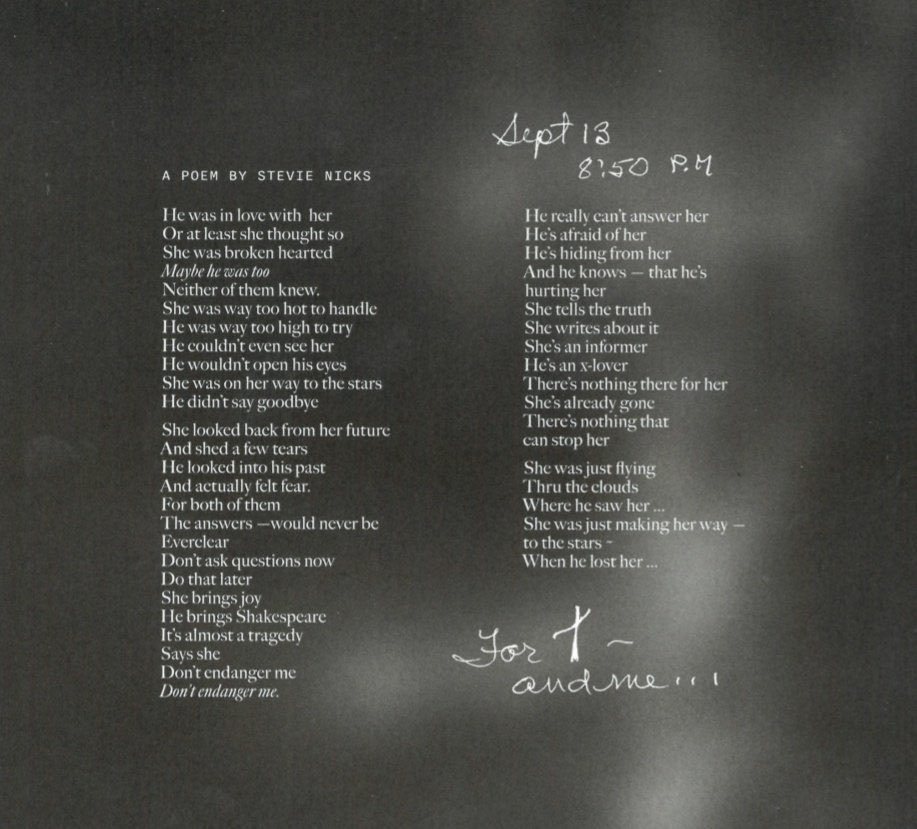 Sept 13
8:50 P.M
A POEM BY STEVIE NICKS
He was in love with her
Or at least she thought so
She was broken hearted
Maybe he was too
Neither of them knew.
She was way too hot to handle
He was way too high to try
He couldn't even see her
He wouldn't open his eyes
She was on her way to the stars
He didn't say goodbye
She looked back from her future
And shed a few tears
He looked into his past
And actually felt fear.
For both of them
The answers —would never be
Everclear
Don't ask questions now
Do that later
She brings joy
He brings Shakespeare
It's almost a tragedy
Says she
Don't endanger me
Don't endanger me.
He really can't answer her
He's afraid of her
He's hiding from her
And he knows — that he's
hurting her
She tells the truth
She writes about it
She's an informer
He's an x-lover
There's nothing there for her
She's already gone
There's nothing that
can stop her
She was just flying
Thru the clouds
Where he saw her ...
She was just making her way —
to the stars ~
When he lost her ...
For T ~
and me...